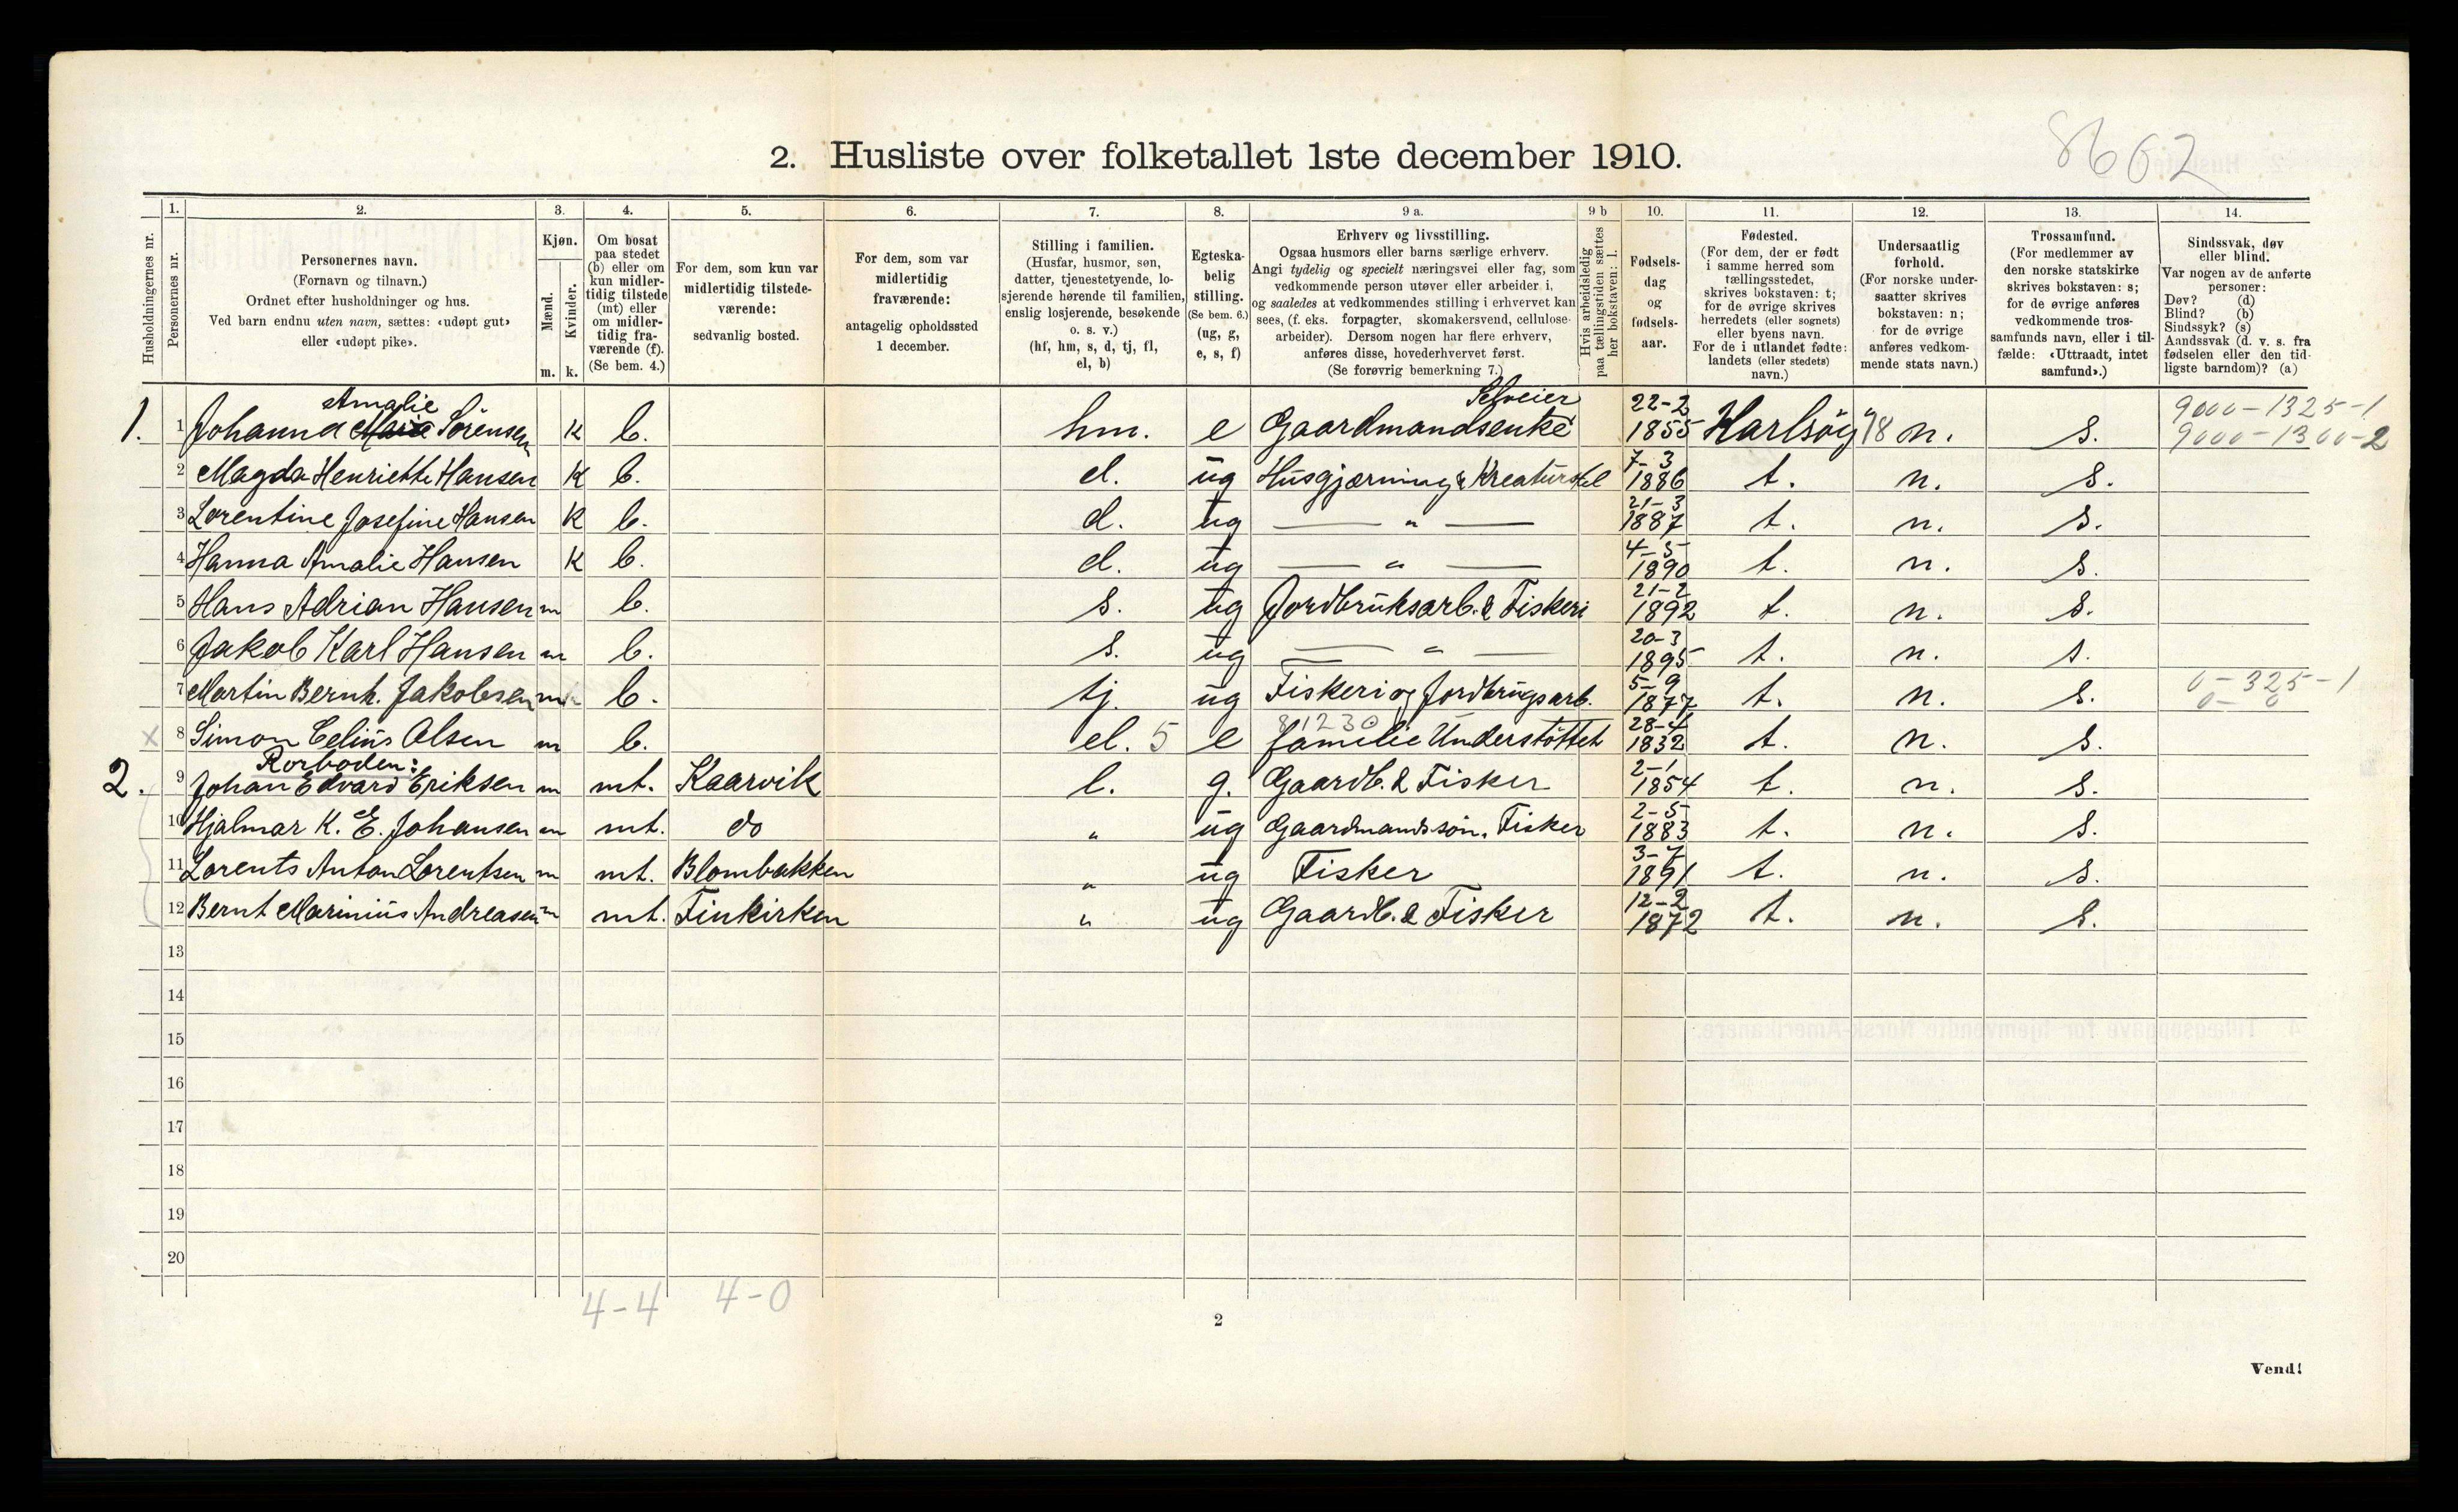 8662
2. Husliste over folketallet 1ste december 1910.
Husholdningernes nr.
1. Personernes nr.
2. Personernes navn. (Fornavn og tilnavn.) Ordnet efter husholdninger og hus. Ved barn endnu uten navn, sættes: «udøpt gut» eller «udøpt pike».
3. Kjøn. Mænd. m. Kvinder. k.
4. Om bosat paa stedet (b) eller om kun midlertidig tilstede (mt) eller om midlertidig fraværende (f). (Se bem. 4.)
5. For dem, som kun var midlertidig tilstedeværende: sedvanlig bosted.
6. For dem, som var midlertidig fraværende: antagelig opholdssted 1 december.
7. Stilling i familien. (Husfar, husmor, søn, datter, tjenestetyende, losjerende hørende til familien, enslig losjerende, besøkende o. s. v.) (hf, hm, s, d, tj, fl, el, b)
8. Egteskabelig stilling. (Se bem. 6.) (ug, g, e, s, f)
9 a. Erhverv og livsstilling. Ogsaa husmors eller barns særlige erhverv. Angi tydelig og specielt næringsvei eller fag, som vedkommende person utøver eller arbeider i, og saaledes at vedkommendes stilling i erhvervet kan sees, (f. eks. forpagter, skomakersvend, cellulosearbeider). Dersom nogen har flere erhverv, anføres disse, hovederhvervet først. (Se forøvrig bemerkning 7.)
9 b Hvis arbeidsledig paa tællingstiden sættes her bokstaven: l.
10. Fødselsdag og fødselsaar.
11. Fødested. (For dem, der er født i samme herred som tællingsstedet, skrives bokstaven: t; for de øvrige skrives herredets (eller sognets) eller byens navn. For de i utlandet fødte: landets (eller stedets) navn.)
12. Undersaatlig forhold. (For norske undersaatter skrives bokstaven: n; for de øvrige anføres vedkommende stats navn.)
13. Trossamfund. (For medlemmer av den norske statskirke skrives bokstaven: s; for de øvrige anføres vedkommende trossamfunds navn, eller i tilfælde: «Uttraadt, intet samfund».)
14. Sindssvak, døv eller blind. Var nogen av de anførte personer: Døv? (d) Blind? (b) Sindssyk? (s) Aandssvak (d. v. s. fra fødselen eller den tidligste barndom)? (a)
1. 1 Johanna Amalie Sørensen k b. hm. e Selveier Gaardmandsenke 22-2 1855 Karlsöy 18 n. s. 9000-1325-1 9000-1300-2
2 Magda Henriette Hansen k b. d. ug Husgjærning & Kreaturstel 7-3 1886 t. n. s.
3 Lorentine Josefine Hansen k b. d. ug — " — 21-3 1887 t. n. s.
4 Hanna Amalie Hansen k b. d. ug — " — 4-5 1890 t. n. s.
5 Hans Adrian Hansen m b. s. ug Jordbruksarb. & Fiskeri 21-2 1892 t. n. s.
6 Jakob Karl Hansen m b. s. ug — " — 20-3 1895 t. n. s.
7 Martin Bernh. Jakobsen m b. tj. ug Fiskeri og Jordbrugsarb. 5-9 1877 t. n. s. 0-325-1 0-0
x 8 Simon Celius Olsen m b. el. 5 e 81230 familie Understöttet 28-4 1832 t. n. s.
Rorboden:
2. 9 Johan Edvard Eriksen m mt. Kaarvik l. g. Gaardb. & Fisker 2-1 1854 t. n. s.
10 Hjalmar K. E. Johansen m mt. do " ug Gaardmandssön, Fisker 2-5 1883 t. n. s.
11 Lorents Anton Lorentsen m mt. Blombakken " ug Fisker 3-7 1891 t. n. s.
12 Bernt Marinius Andreasen m mt. Finkirken " ug Gaardb. & Fisker 12-2 1872 t. n. s.
13
14
15
16
17
18
19
20
4-4 4-0
2
Vend!